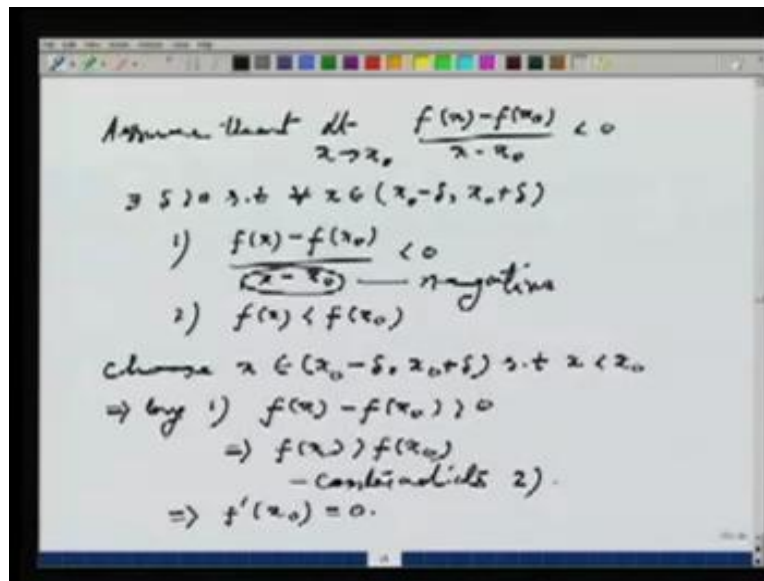 Assume that lt f(x)-f(x₀)/x-x₀ < 0
x→x₀
∃ δ>0 s.t ∀ x∈(x₀-δ, x₀+δ)
1) f(x)-f(x₀)/x-x₀ < 0 — negative
2) f(x) < f(x₀)
choose x ∈ (x₀-δ, x₀+δ) s.t x < x₀
⇒ by 1) f(x) - f(x₀) > 0
⇒ f(x) > f(x₀)
- contradicts 2).
⇒ f'(x₀) = 0.